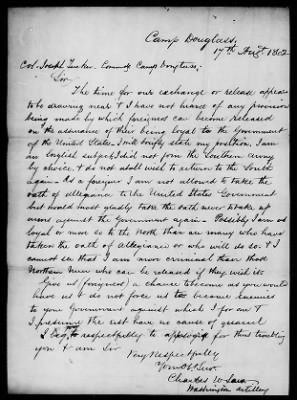 Camp Douglass,
17th Augt. 1862
Col. Joseph Tucker. Commdg Camp Douglass,
Sir
The time for our exchange or release appears
to be drawing near & I have not heard of any provision
being made by which foreigners can become released
on the assurance of their being loyal to the Government
of the United States. I will briefly state my position. I am
an English subject, did not join the Southern Army
by choice & do not wish to return to the South
again. As a foreigner I am not allowed to take the
oath of allegiance to the United States Government
but would most gladly take the oath never to take up
arms against the Government again. Possibly I am as
loyal or more so to the North than are many who have
taken the oath of allegiance or who will do so. & I
cannot see that I am more criminal than those
Northern men who can be released if they wish it.
Give us (foreigners) a chance to become as you would
have us & do not force us to become enemies
to your Government against which I for one &
I presume the rest have no cause of quarrel
I beg respectfully to apologize for thus troubling
you & am Sir
Very Respectfully
Your Obt. Servt.
Charles W
Washington Artillery